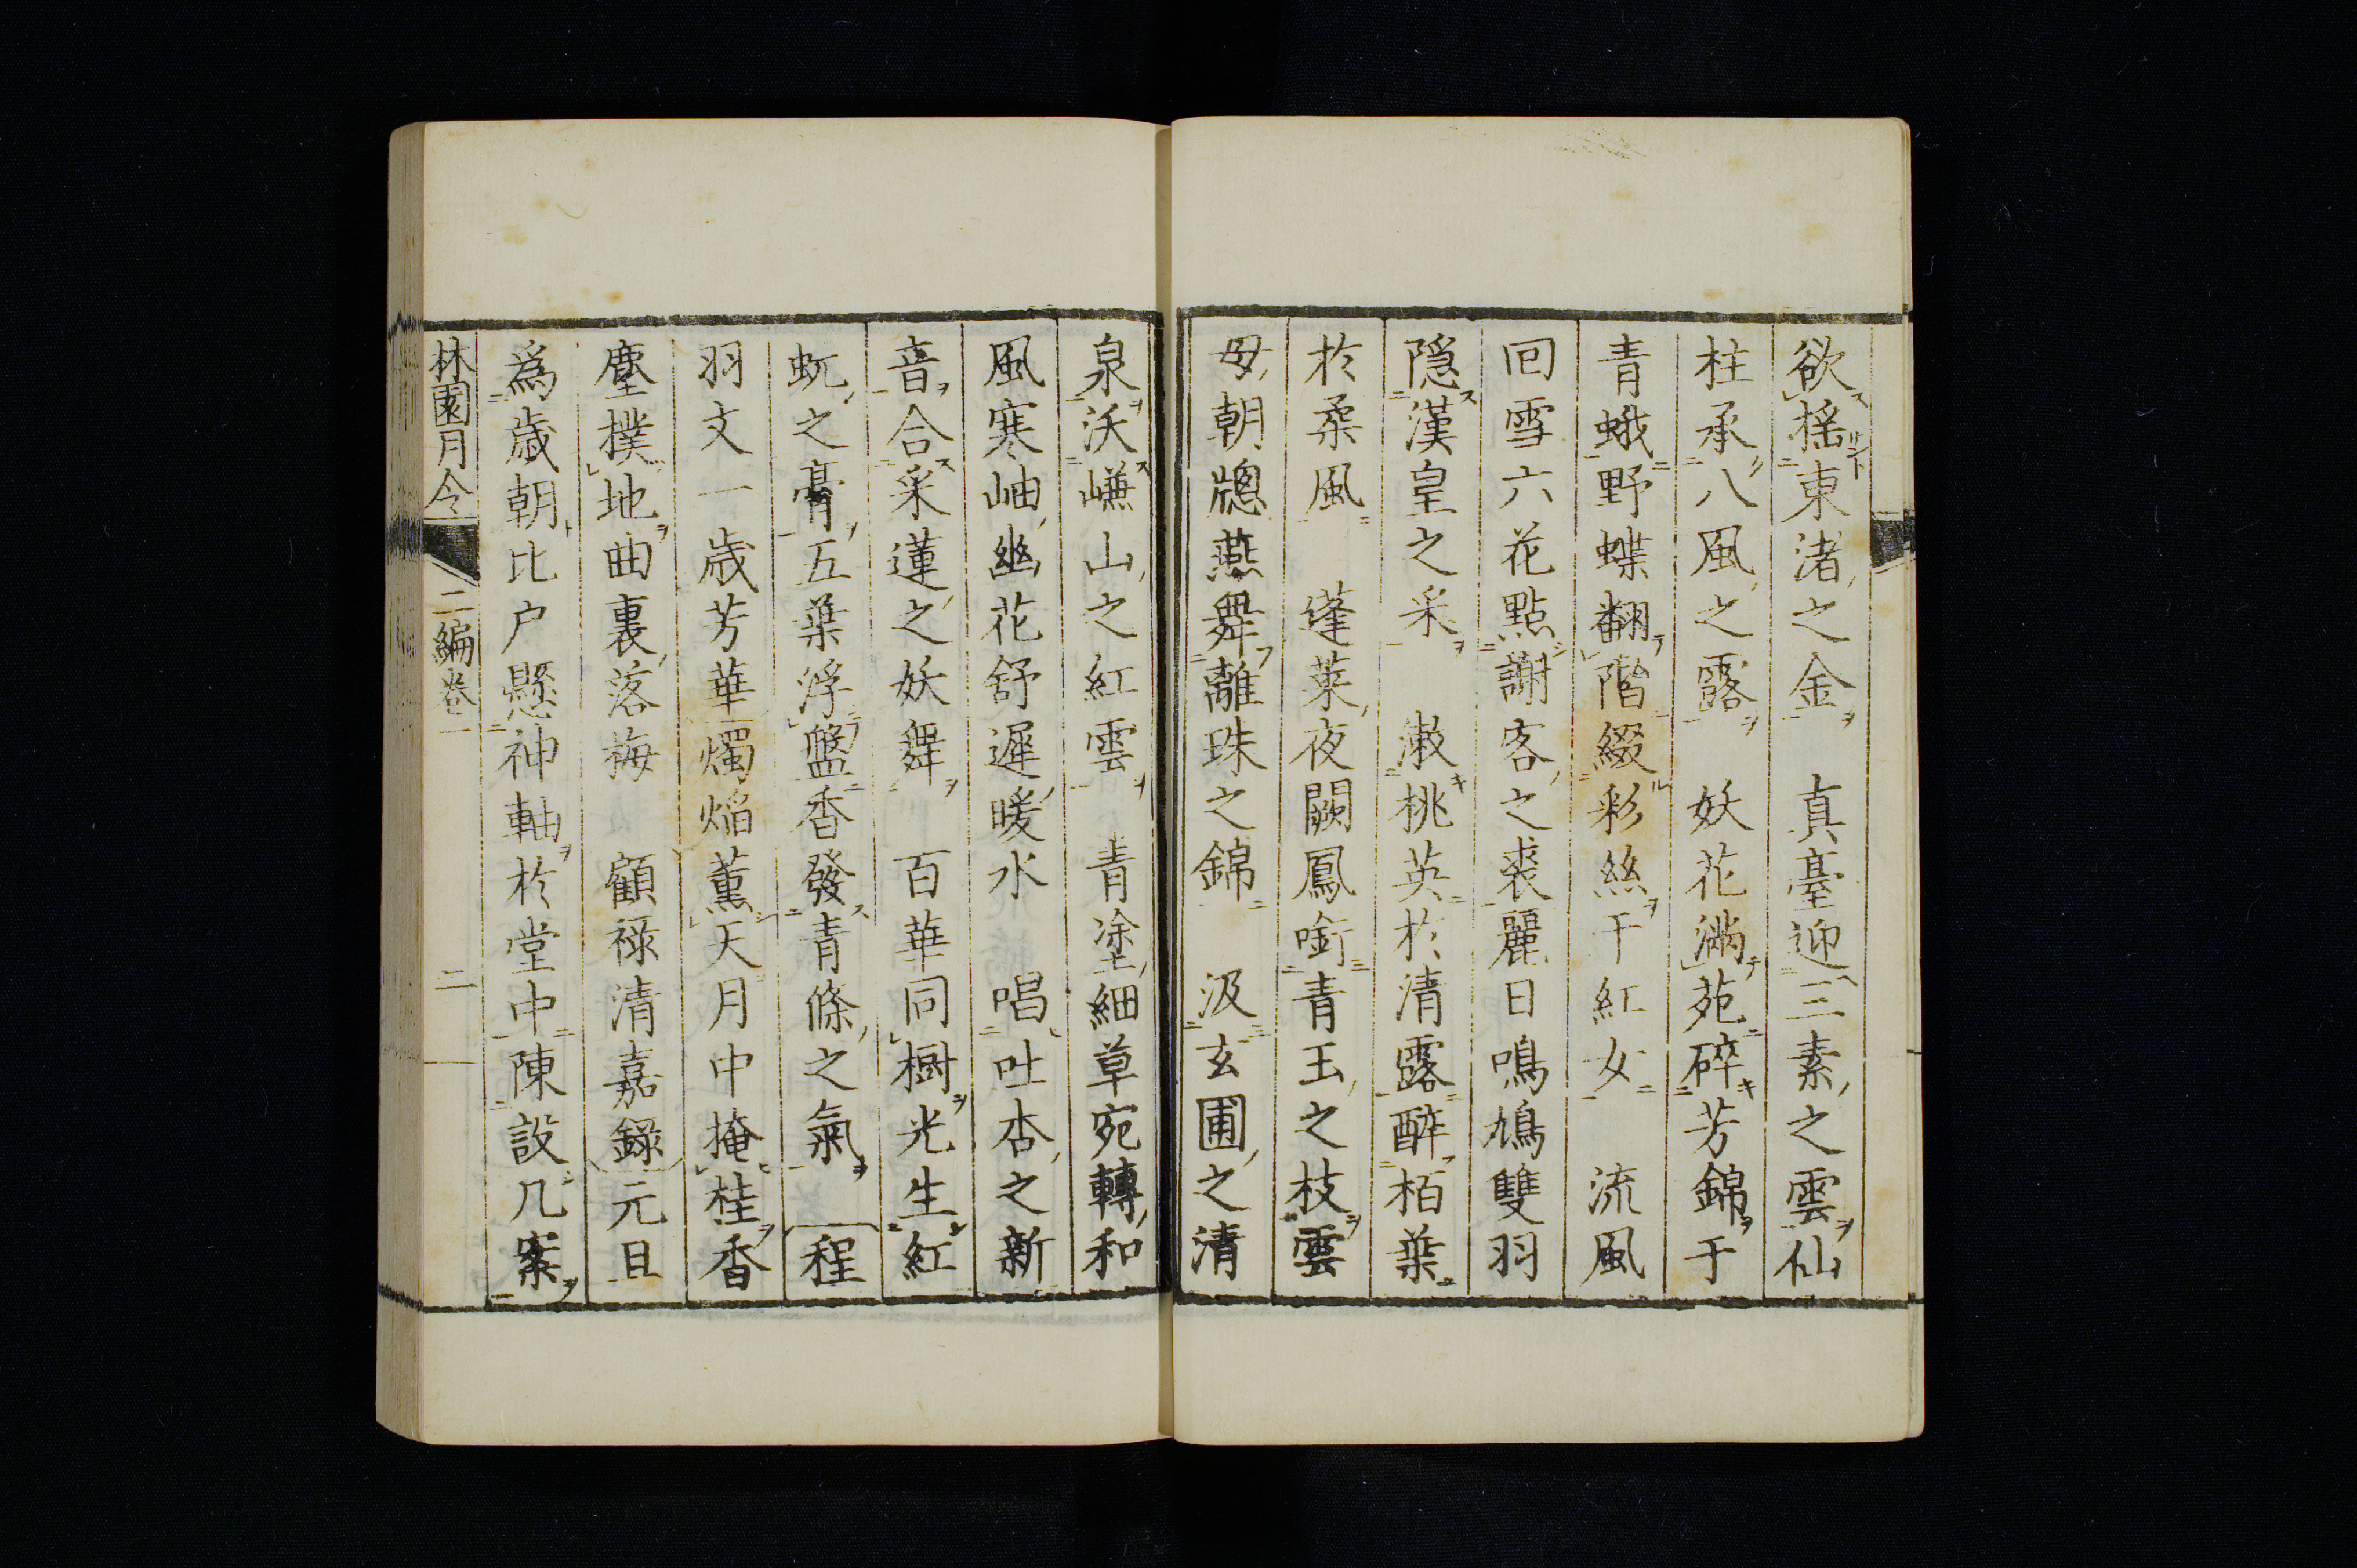 欲揺東渚之金　真臺迎三素之雲仙
柱承八風之露　妖花滿苑碎芳錦于
青蛾野蝶翻階綴彩絲于紅女　流風
回雪六花點謝客之裘麗日鳴鳩雙羽
隠漢皇之采　漱桃英於清露醉栢葉
於柔風　蓬莱夜闕鳳銜青玉之枝雲
母朝牕燕舞離珠之錦　汲玄圃之清
泉沃㠗山之紅雲　青塗細草宛轉和
風寒岫幽花舒遲暖水　唱吐杏之新
音合采蓮之妖舞　百華同樹光生紅
虬之膏五葉浮盤香發青條之氣　程
羽文一歳芳華燭焔薫天月中掩桂香
塵撲地曲裏落梅　顧禄清嘉録元旦
爲歳朝比户懸神軸於堂中陳設几案
林園月令　二編卷一　二